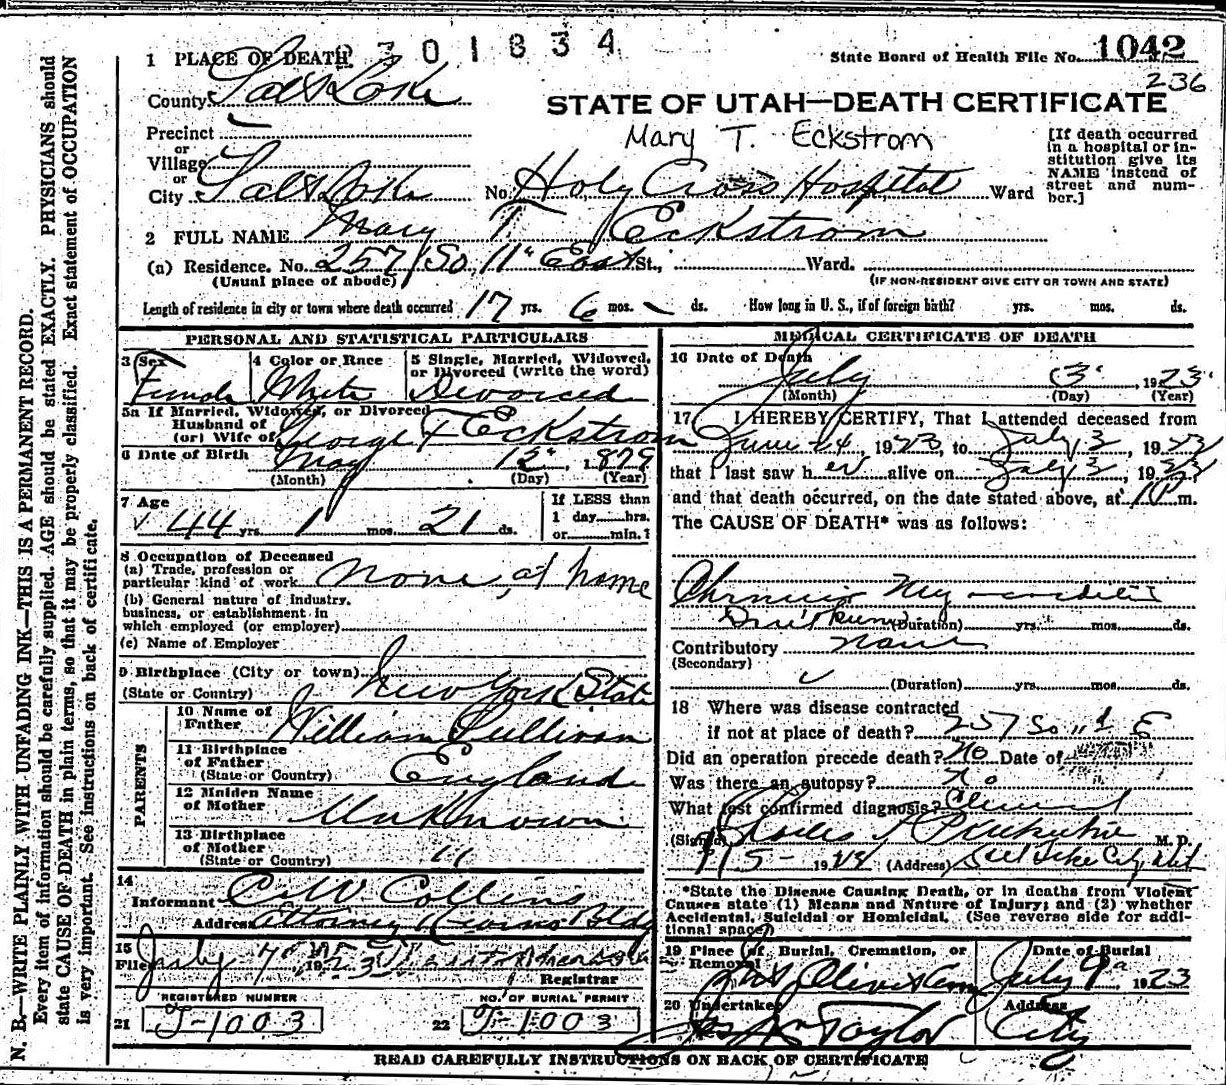 2301834
State Board of Health File No. 1042
236
1 PLACE OF DEATH
County Salt Lake
STATE OF UTAH—DEATH CERTIFICATE
Mary T. Eckstrom
Precinct
or
Village
or
City Salt Lake No. Holy Cross Hospital Ward
[If death occurred
in a hospital or in-
stitution give its
NAME instead of
street and num-
ber.]
2 FULL NAME Mary T Eckstrom
(a) Residence. No. 257 So 11" East St., Ward.
(Usual place of abode) (IF NON-RESIDENT GIVE CITY OR TOWN AND STATE)
Length of residence in city or town where death occurred 17 yrs. 6 mos. ds. How long in U. S., if of foreign birth? yrs. mos. ds.
PERSONAL AND STATISTICAL PARTICULARS
3 Sex Female
4 Color or Race White
5 Single, Married, Widowed,
or Divorced (write the word)
Devorced
5a If Married, Widowed, or Divorced
Husband of
(or) Wife of George F Eckstrom
6 Date of Birth May 12" 1879
(Month) (Day) (Year)
7 Age 44 yrs. 1 mos. 21 ds.
If LESS than
1 day......hrs.
or.........min.?
8 Occupation of Deceased
(a) Trade, profession or
particular kind of work none, at home
(b) General nature of industry,
business, or establishment in
which employed (or employer)
(c) Name of Employer
9 Birthplace (City or town)
(State or Country) New York State
PARENTS
10 Name of
Father William Sullivan
11 Birthplace
of Father
(State or Country) England
12 Maiden Name
of Mother Unknown
13 Birthplace
of Mother
(State or Country) "
14
Informant C W Collins
Address attorney Bldg
15
Filed July 7" 1923
Registrar
REGISTERED NUMBER
21 J-1003
NO. OF BURIAL PERMIT
22 J-1003
MEDICAL CERTIFICATE OF DEATH
16 Date of Death July 3 1923
(Month) (Day) (Year)
17 I HEREBY CERTIFY, That I attended deceased from
June 24, 1923, to July 3, 1923
that I last saw her alive on July 3, 1923
and that death occurred, on the date stated above, at 1 P m.
The CAUSE OF DEATH* was as follows:
Chronic Myocarditis
(Duration) yrs. mos. ds.
Contributory None
(Secondary)
(Duration) yrs. mos. ds.
18 Where was disease contracted
if not at place of death? 257 So 11 E
Did an operation precede death? No Date of
Was there an autopsy? No
What test confirmed diagnosis? Clinical
(Signed) M. D.
(Address) Salt Lake City Ut
*State the Disease Causing Death, or in deaths from Violent
Causes state (1) Means and Nature of Injury; and (2) whether
Accidental, Suicidal or Homicidal. (See reverse side for addi-
tional space)
19 Place of Burial, Cremation, or
Removal Mt Olivet Cem
Date of Burial
July 9" 1923
20 Undertaker Taylor
Address
City
READ CAREFULLY INSTRUCTIONS ON BACK OF CERTIFICATE
N. B.—WRITE PLAINLY WITH UNFADING INK—THIS IS A PERMANENT RECORD.
Every item of information should be carefully supplied. AGE should be stated EXACTLY. PHYSICIANS should
state CAUSE OF DEATH in plain terms, so that it may be properly classified. Exact statement of OCCUPATION
is very important. See instructions on back of certificate.